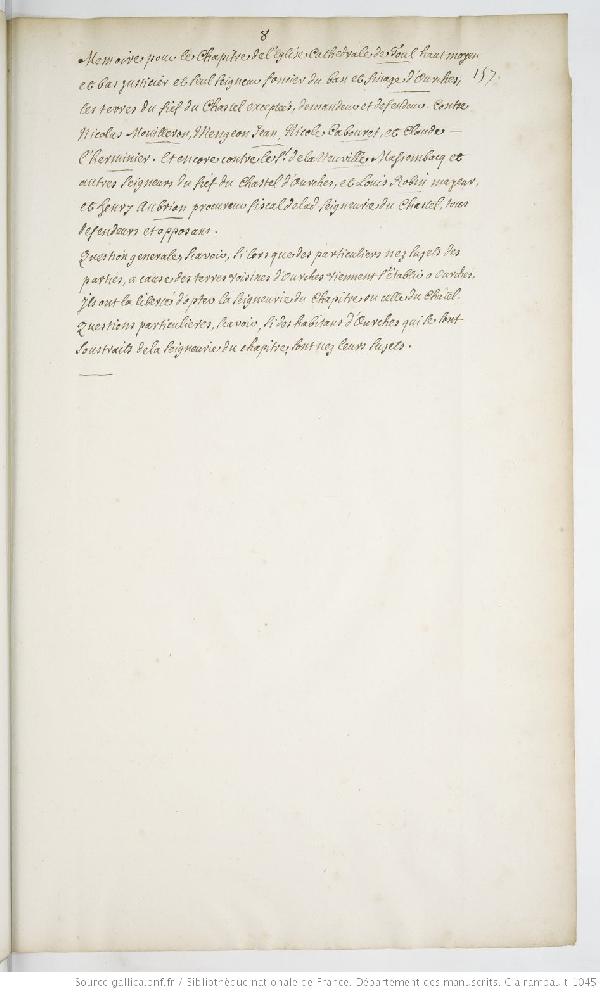 8
Memoire pour le Chapitre de l'Eglise Cathedrale de Toul haut moyen
et bas justicier et seul seigneur foncier du ban et finage d'Ourches,
157.
les terres du fief du Chastel exceptées, demandeur et defendeur. Contre
Nicolas Mouilleron, Mengeon Jean, Nicole Cabouret, et Claude
l'herminier. Et encore contre le Sr. de la Neuville, Massembacq et
autres seigneurs du fief du Chastel d'Ourches, et Louis Robin mayeur,
et henry Aubrion procureur fiscal de lad seigneurie du Chastel, tous
defendeurs et opposans.
Question generale, scavoir, si lorsque des particuliers nez sujets des
parties, a cause des terres voisines d'Ourches viennent s'etablir a
Ils ont la liberté d'opter la seigneurie du Chapitre ou celle du Châtel.
Questions particulieres, scavoir, si des habitans d'Ourches qui se sont
soustraits de la seigneurie du chapitre, sont nez leurs sujets.
Source gallica.bnf.fr / Bibliothèque nationale de France. Département des manuscrits. Clairambault 1045